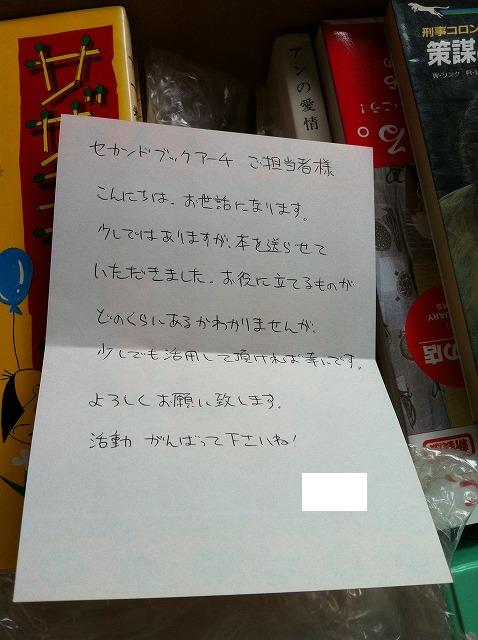 セカンドブックアーチ ご担当者様
こんにちは、お世話になります。
少しではありますが、本を送らせて
いただきました。お役に立てるものが
どのくらいあるかわかりませんが、
少しでも活用して頂ければ幸いです。
よろしくお願い致します。
活動 がんばって下さいね!
アンの愛情
刑事コロン
策謀
W・リンク
る。
の店